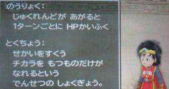 のうりょく:
じゅくれんどが あがると
1ターンごとに HPかいふく
とくちょう:
せかいをすくう
チカラを もつものだけが
なれるという
でんせつの しょくぎょう。